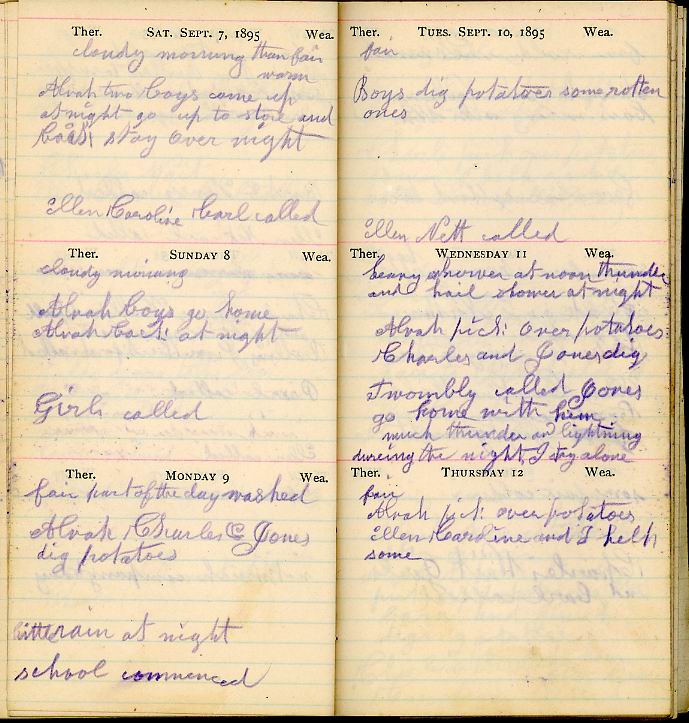 Ther. SAT. SEPT. 7, 1895 Wea.
cloudy morning than fair
warm
Alvah two boys come up
at night go up to store and
back stay over night
Ellen Caroline Carl called
Ther. SUNDAY 8 Wea.
cloudy morning
Alvah boys go home
Alvah back at night
Girls called
Ther. MONDAY 9 Wea.
fair part of the day washed
Alvah Charles C Jones
dig potatoes
little rain at night
school commenced
Ther. TUES. SEPT. 10, 1895 Wea.
fair
Boys dig potatoes some rotten
ones
Ellen Nett called
Ther. WEDNESDAY 11 Wea.
heavy shower at noon thunder
and hail shower at night
Alvah pick over potatoes
Charles and Jones dig
Twombly called Jones
go home with him
much thunder and lightning
dureing the night I stay alone
Ther. THURSDAY 12 Wea.
fair
Alvah pick over potatoes
Ellen Caroline and I help
some